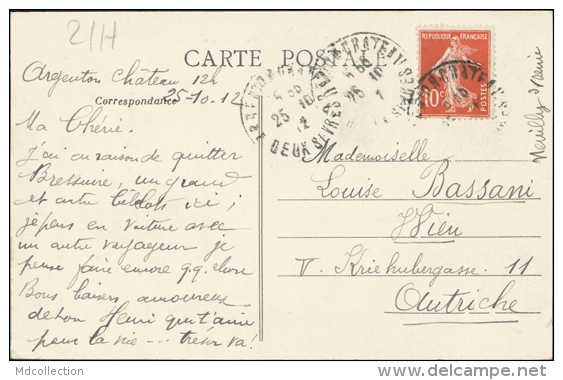 21H
CARTE POSTALE
Argenton Château 12h
Correspondance 25-10-12
Ma Chérie.
J'ai eu raison de quitter
Bressuire, un grand
et autre ici, je
pars en voiture avec
un autre voyageur je
pense faire encore q.q. chose
Bons baisers amoureux
de ton Henri qui t'aime
pour la vie --- trésor va!
ARGENTON-CHATEAU
25 10
12
DEUX SEVRES
REPUBLIQUE FRANÇAISE
10c
POSTES
Mademoiselle
Louise Bassani
Wien
V. Kriehubergasse 11
Autriche
Neuilly s/Seine
Mdcollection
delcampe.net